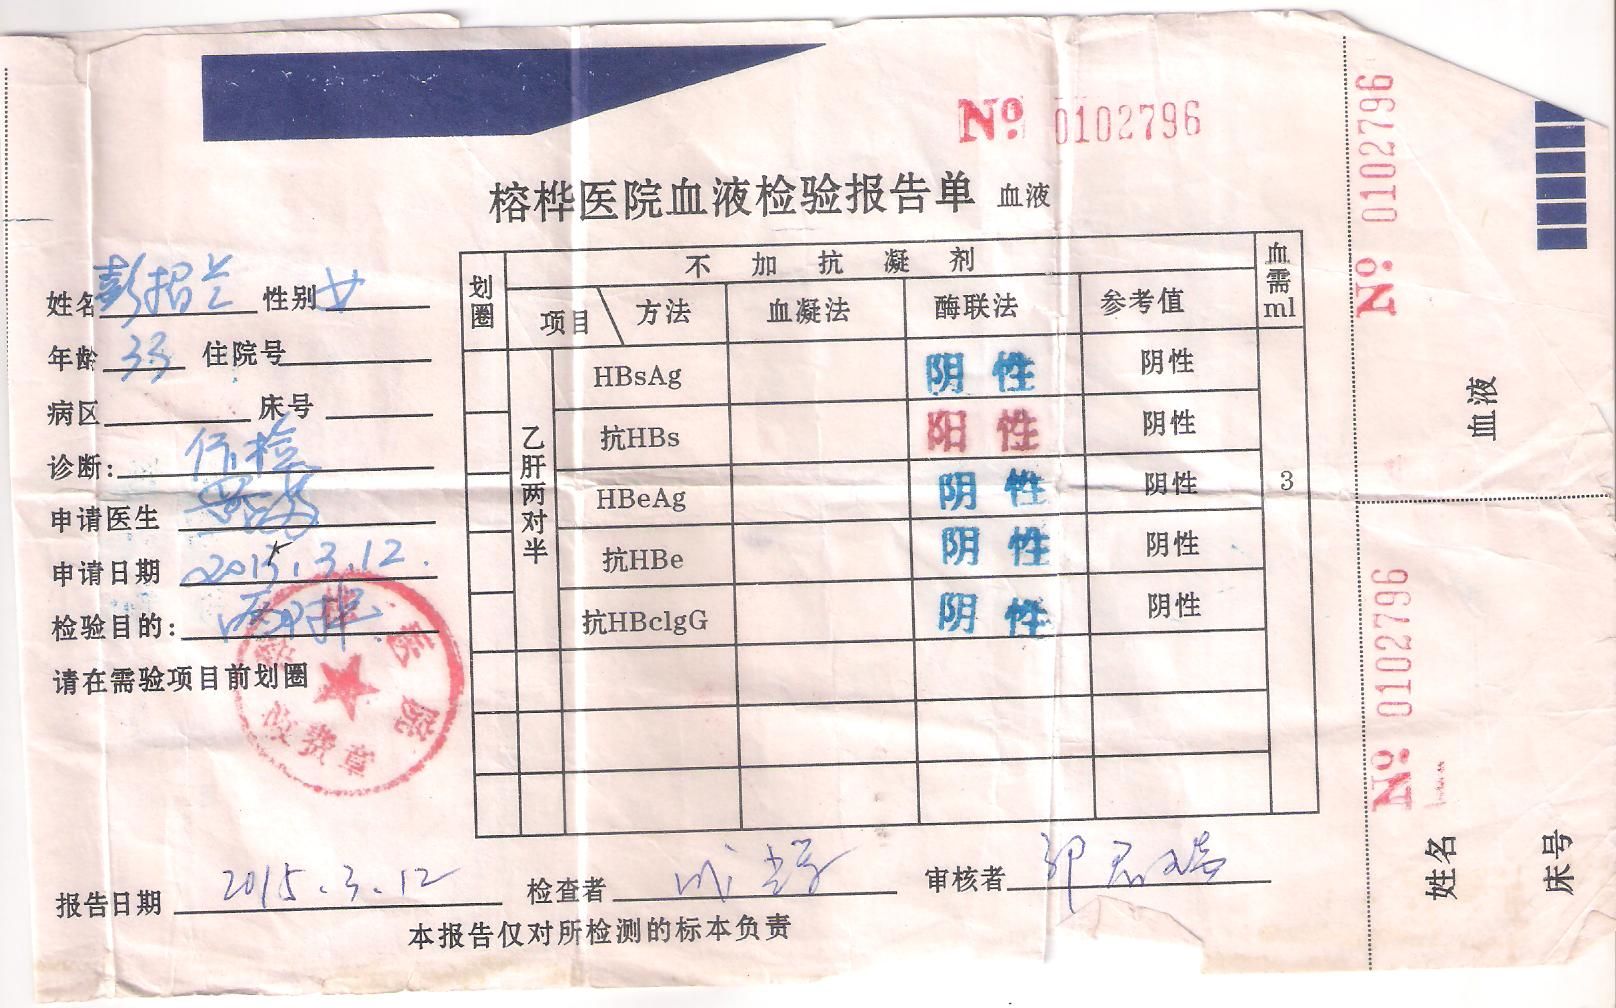 No 0102796
榕桦医院血液检验报告单 血液
姓名 彭招兰 性别 女
年龄 33 住院号
病区 床号
诊断:
申请医生
申请日期 2015.3.12.
检验目的:
请在需验项目前划圈
医院
收费章
划圈 不加抗凝剂 血需ml
项目 方法 血凝法 酶联法 参考值
乙肝两对半 3
HBsAg 阴性 阴性
抗HBs 阳性 阴性
HBeAg 阴性 阴性
抗HBe 阴性 阴性
抗HBclgG 阴性 阴性
报告日期 2015.3.12 检查者 审核者
本报告仅对所检测的标本负责
No 0102796
血液
No 0102796
姓名
床号